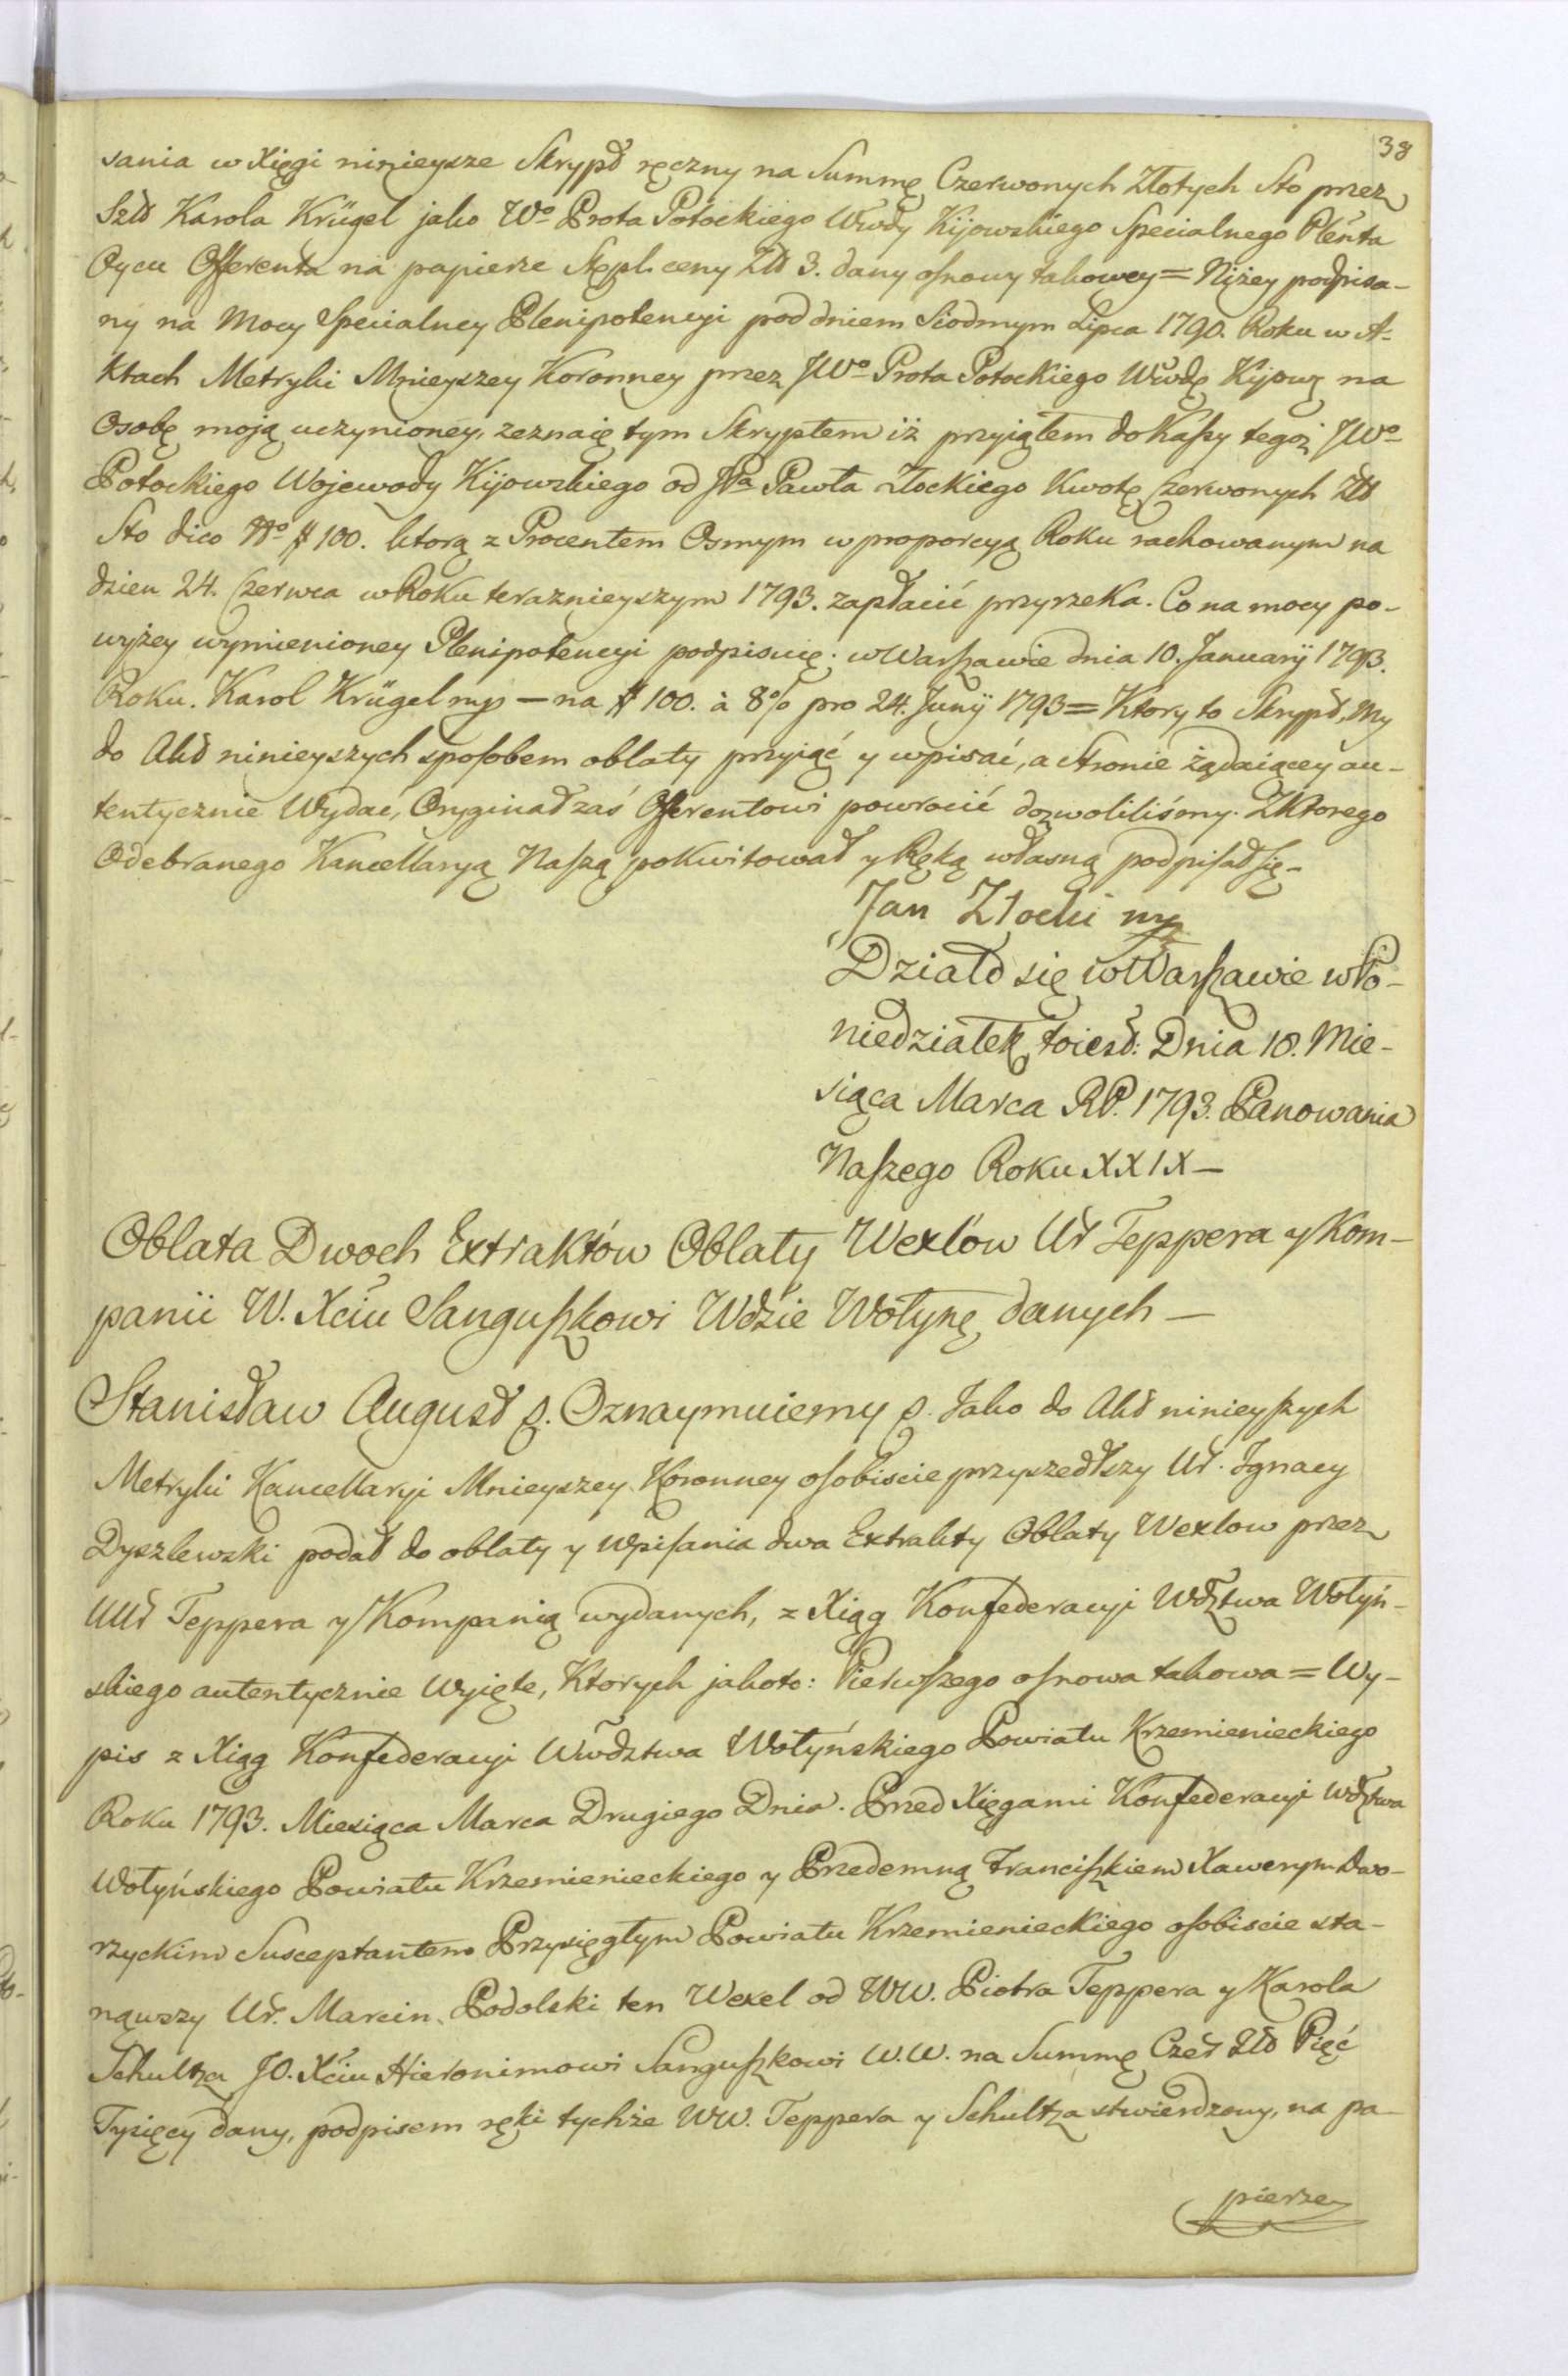 38
sania w Xięgi ninieysze Skrypt ręczny na Summę Czerwonych Złotych Sto przez
Szlt Karola Krügel jako Wo Prota Potockiego Wwdy Kijowskiego Specialnego Plenta
Oycu Offerenta na papierze Stępl. ceny Złt 3. dany osnowy takowey = Niżey podpisa-
ny na Mocy Specialney Plenipotencyi pod dniem Siodmym Lipca 1790. Roku w A-
ktach Metryki Mnieyszey Koronney przez JWo Prota Potockiego Wwdę Kijowg na
Osobę moją uczynioney, zeznaię tym Skryptem iż przyiąłem do Kassy tegoż JWo
Potockiego Wojewody Kijowskiego od JPa Pawła Złockiego Kwotę Czerwonych Złt
Sto dico No # 100. ktorą z Procentem Osmym w proporcyą Roku rachowanym na
dzien 24. Czerwca w Roku teraznieyszym 1793. zapłacić przyrzeka. Co na mocy po-
wyżey wymienioney Plenipotencyi podpisuię. w Warszawie dnia 10. January 1793.
Roku. Karol Krügel mp — na # 100. à 8% pro 24. Juny 1793 = Ktory to Skrypt, My
do Akt ninieyszych sposobem oblaty przyiąć y wpisać, a stronie żądaiącey au-
tentycznie Wydać, Oryginał zaś Offerentowi powrocić dozwoliliśmy. Z Ktorego
Odebranego Kancellaryą Naszą pokwitował y Ręką własną podpisał się -
Jan Złocki mp
Działo się w Warszawie w Po-
niedziałek toiest: Dnia 18. Mie-
siąca Marca RP. 1793. Panowania
Naszego Roku XXIX —
Oblata Dwoch Extraktów Oblaty Wexlów Ur Teppera y Kom-
panii W. Xciu Sanguszkowi Wdzie Wołynę danych —
Stanisław August p. Oznaymuiemy p. Jako do Akt ninieyszych
Metryki Kancellaryi Mnieyszey Koronney osobiscie przyszedłszy Ur. Jgnacy
Dyszlewski podał do oblaty y wpisania dwa Extrakty Oblaty Wexlow przez
UUr Teppera y Kompanią wydanych, z Xiąg Konfederacyi Wdztwa Wołyń-
skiego autentycznie Wyięte, Ktorych jakoto: Pierwszego osnowa takowa = Wy-
pis z Xiąg Konfederacyi Wwdztwa Wołyńskiego Powiatu Krzemienieckiego
Roku 1793. Miesiąca Marca Drugiego Dnia. Przed Xięgami Konfederacyi Wdztwa
Wołyńskiego Powiatu Krzemienieckiego y Przedemną Franciszkiem Xawerym Dwo-
rzyckim Susceptantem Przysięgłym Powiatu Krzemienieckiego osobiscie sta-
nąwszy Ur. Marcin Podolski ten Wexel od WW. Piotra Teppera y Karola
Schultza JO. Xciu Hieronimowi Sanguszkowi W.W. na Summę Czer Złt Pięć
Tysięcy dany, podpisem ręki tychże WW. Teppera y Schultza stwierdzony, na pa-
pierze